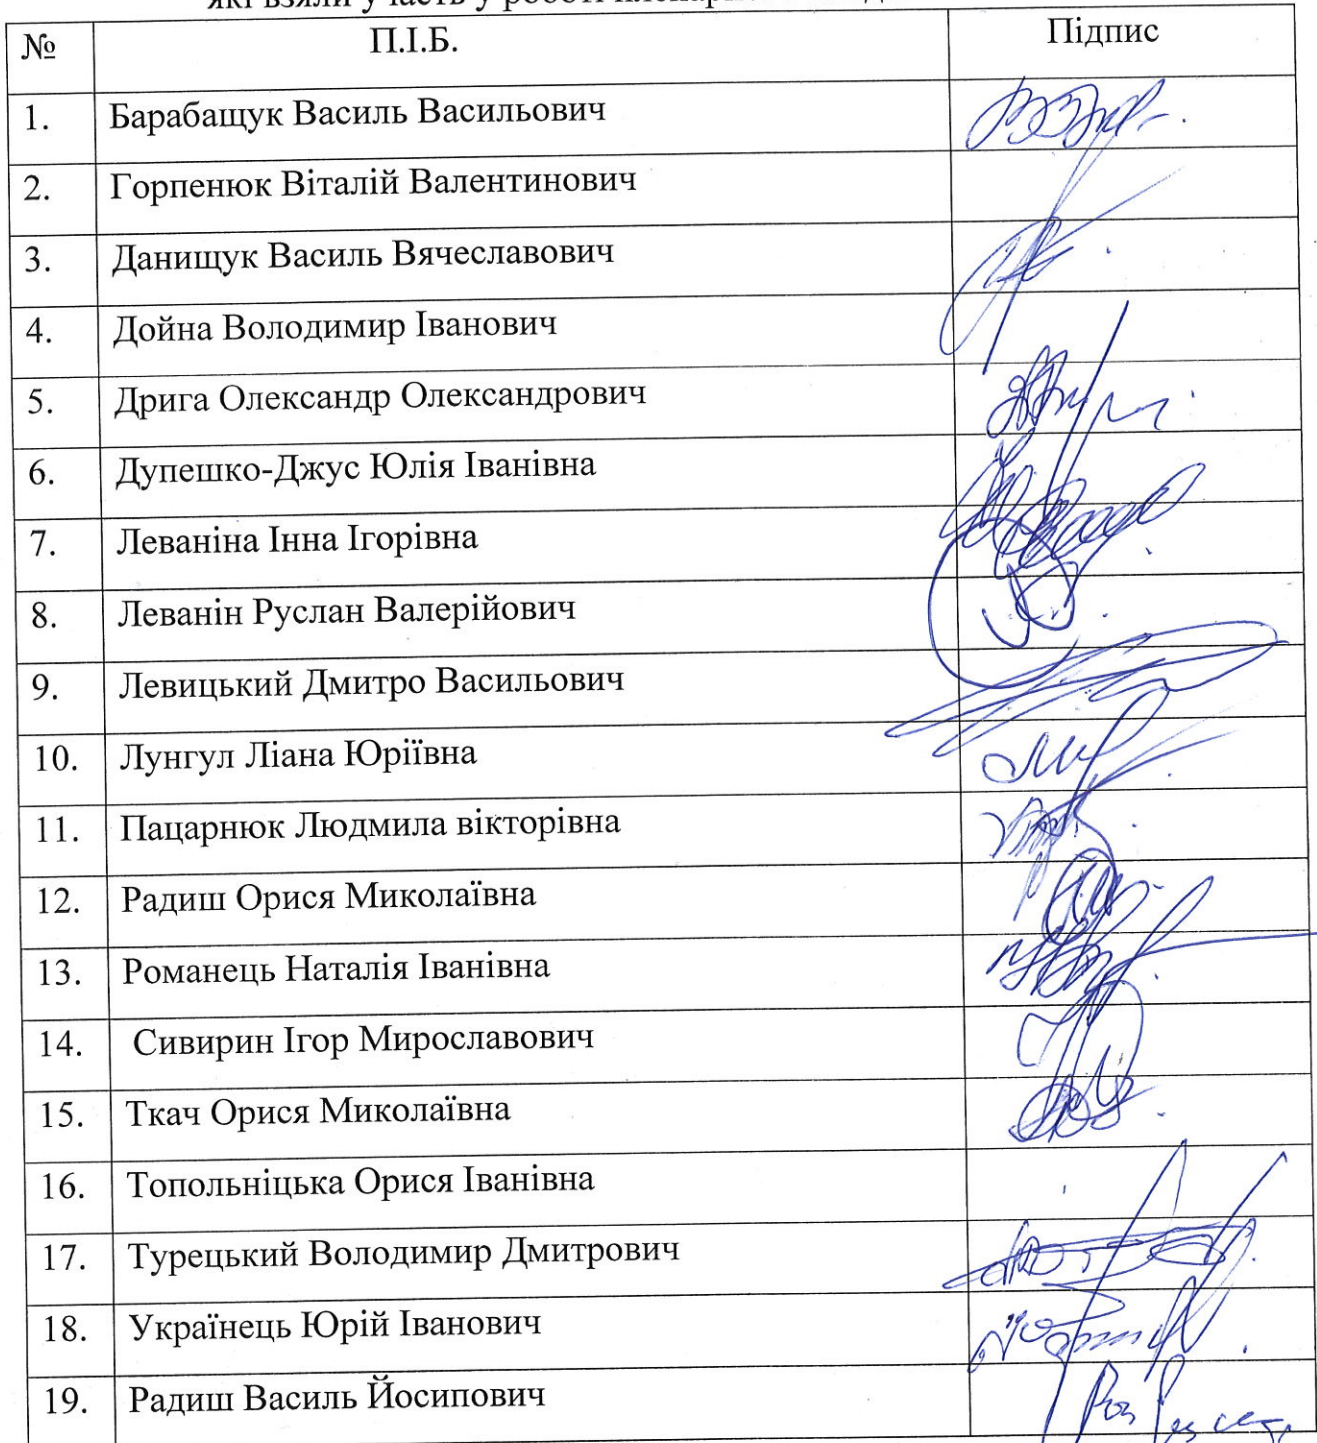 які взяли участь у роботі
№ П.І.Б. Підпис
1. Барабащук Василь Васильович
2. Горпенюк Віталій Валентинович
3. Данищук Василь Вячеславович
4. Дойна Володимир Іванович
5. Дрига Олександр Олександрович
6. Дупешко-Джус Юлія Іванівна
7. Леваніна Інна Ігорівна
8. Леванін Руслан Валерійович
9. Левицький Дмитро Васильович
10. Лунгул Ліана Юріївна
11. Пацарнюк Людмила вікторівна
12. Радиш Орися Миколаївна
13. Романець Наталія Іванівна
14. Сивирин Ігор Мирославович
15. Ткач Орися Миколаївна
16. Топольніцька Орися Іванівна
17. Турецький Володимир Дмитрович
18. Українець Юрій Іванович
19. Радиш Василь Йосипович